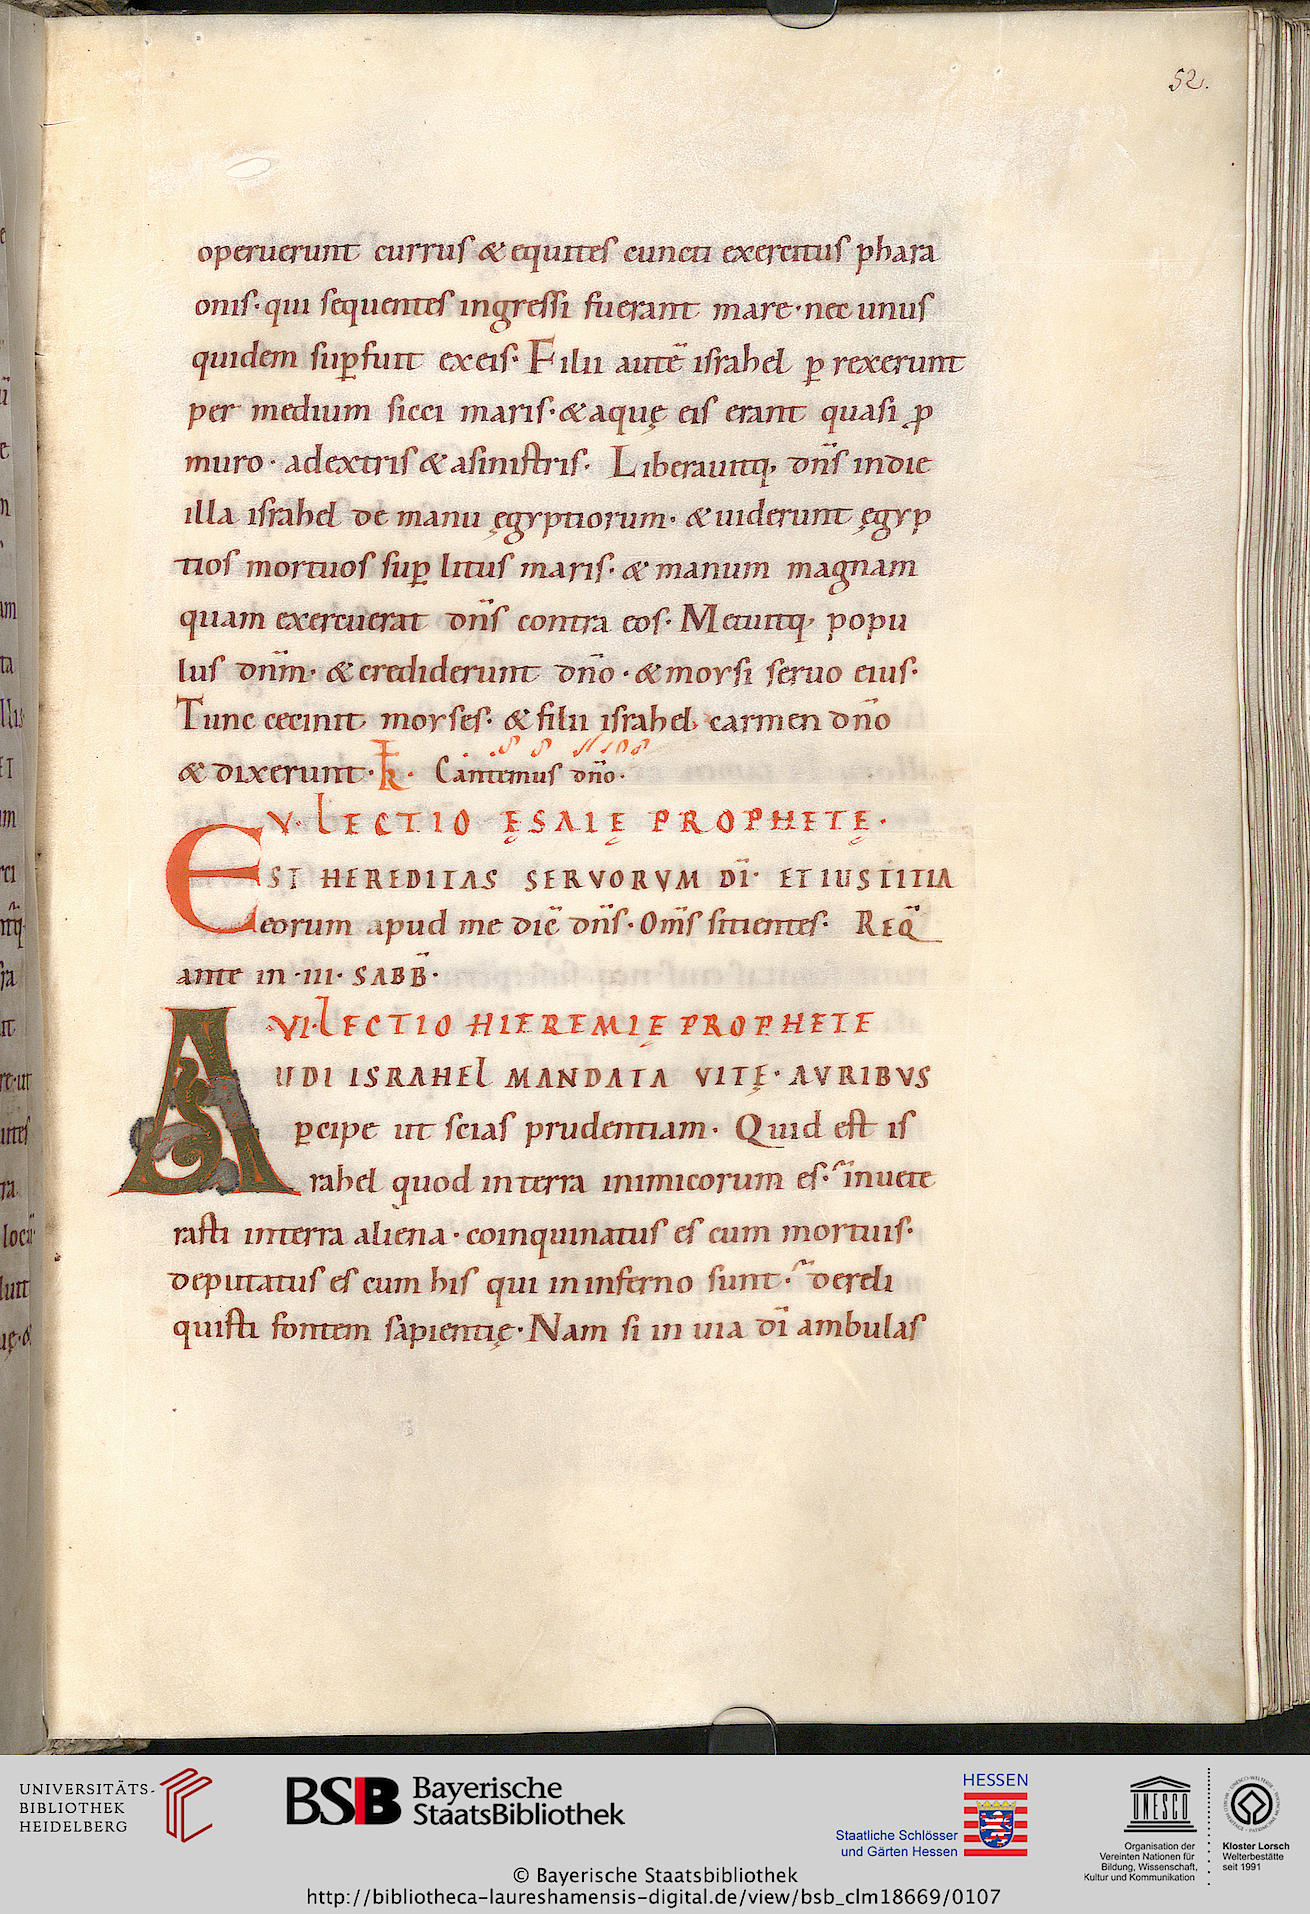 52.
operuerunt currus & equites cuncti exercitus phara
onis· qui sequentes ingressi fuerant mare· nec unus
quidem sup̲fuit ex eis· Filii autē israhel p̲ rexerunt
per medium sicci maris· & aquę eis erant quasi ꝓ
muro· adextris & asinistris· Liberauitq· dn̄s indie
illa israhel de manu ęgyptiorum· & uiderunt ęgyp
tios mortuos sup̲ litus maris· & manum magnam
quam exercuerat dn̄s contra eos· Metuitq· popu
lus dn̄m· & crediderunt dn̄o· & moysi seruo eius·
Tunc cecinit moyses· & filii israhel carmen dn̄o
& dixerunt· Cantemus dn̄o·
V· LECTIO ĘSAIĘ PROPHETĘ·
EST HEREDITAS SERVORVM DĪ· ET IUSTITIA
eorum apud me dic̄ dn̄s· Om̄s sitientes· REQ̄
ante in ·III· SABB̄·
·VI· LECTIO HIEREMIĘ PROPHETE
AUDI ISRAHEL MANDATA VITĘ· AVRIBVS
p̲cipe ut scias prudentiam· Quid est is
rahel quod interra inimicorum es· inuete
rasti interra aliena· coinquinatus es cum mortuis·
deputatus es cum his qui in inferno sunt· dereli
quisti fontem sapientię· Nam si in uia dī ambulas
UNIVERSITÄTS-
BIBLIOTHEK
HEIDELBERG
BSB Bayerische
StaatsBibliothek
HESSEN
Staatliche Schlösser
und Gärten Hessen
UNESCO
Organisation der
Vereinten Nationen für
Bildung, Wissenschaft,
Kultur und Kommunikation
Kloster Lorsch
Welterbestätte
seit 1991
© Bayerische Staatsbibliothek
http://bibliotheca-laureshamensis-digital.de/view/bsb_clm18669/0107